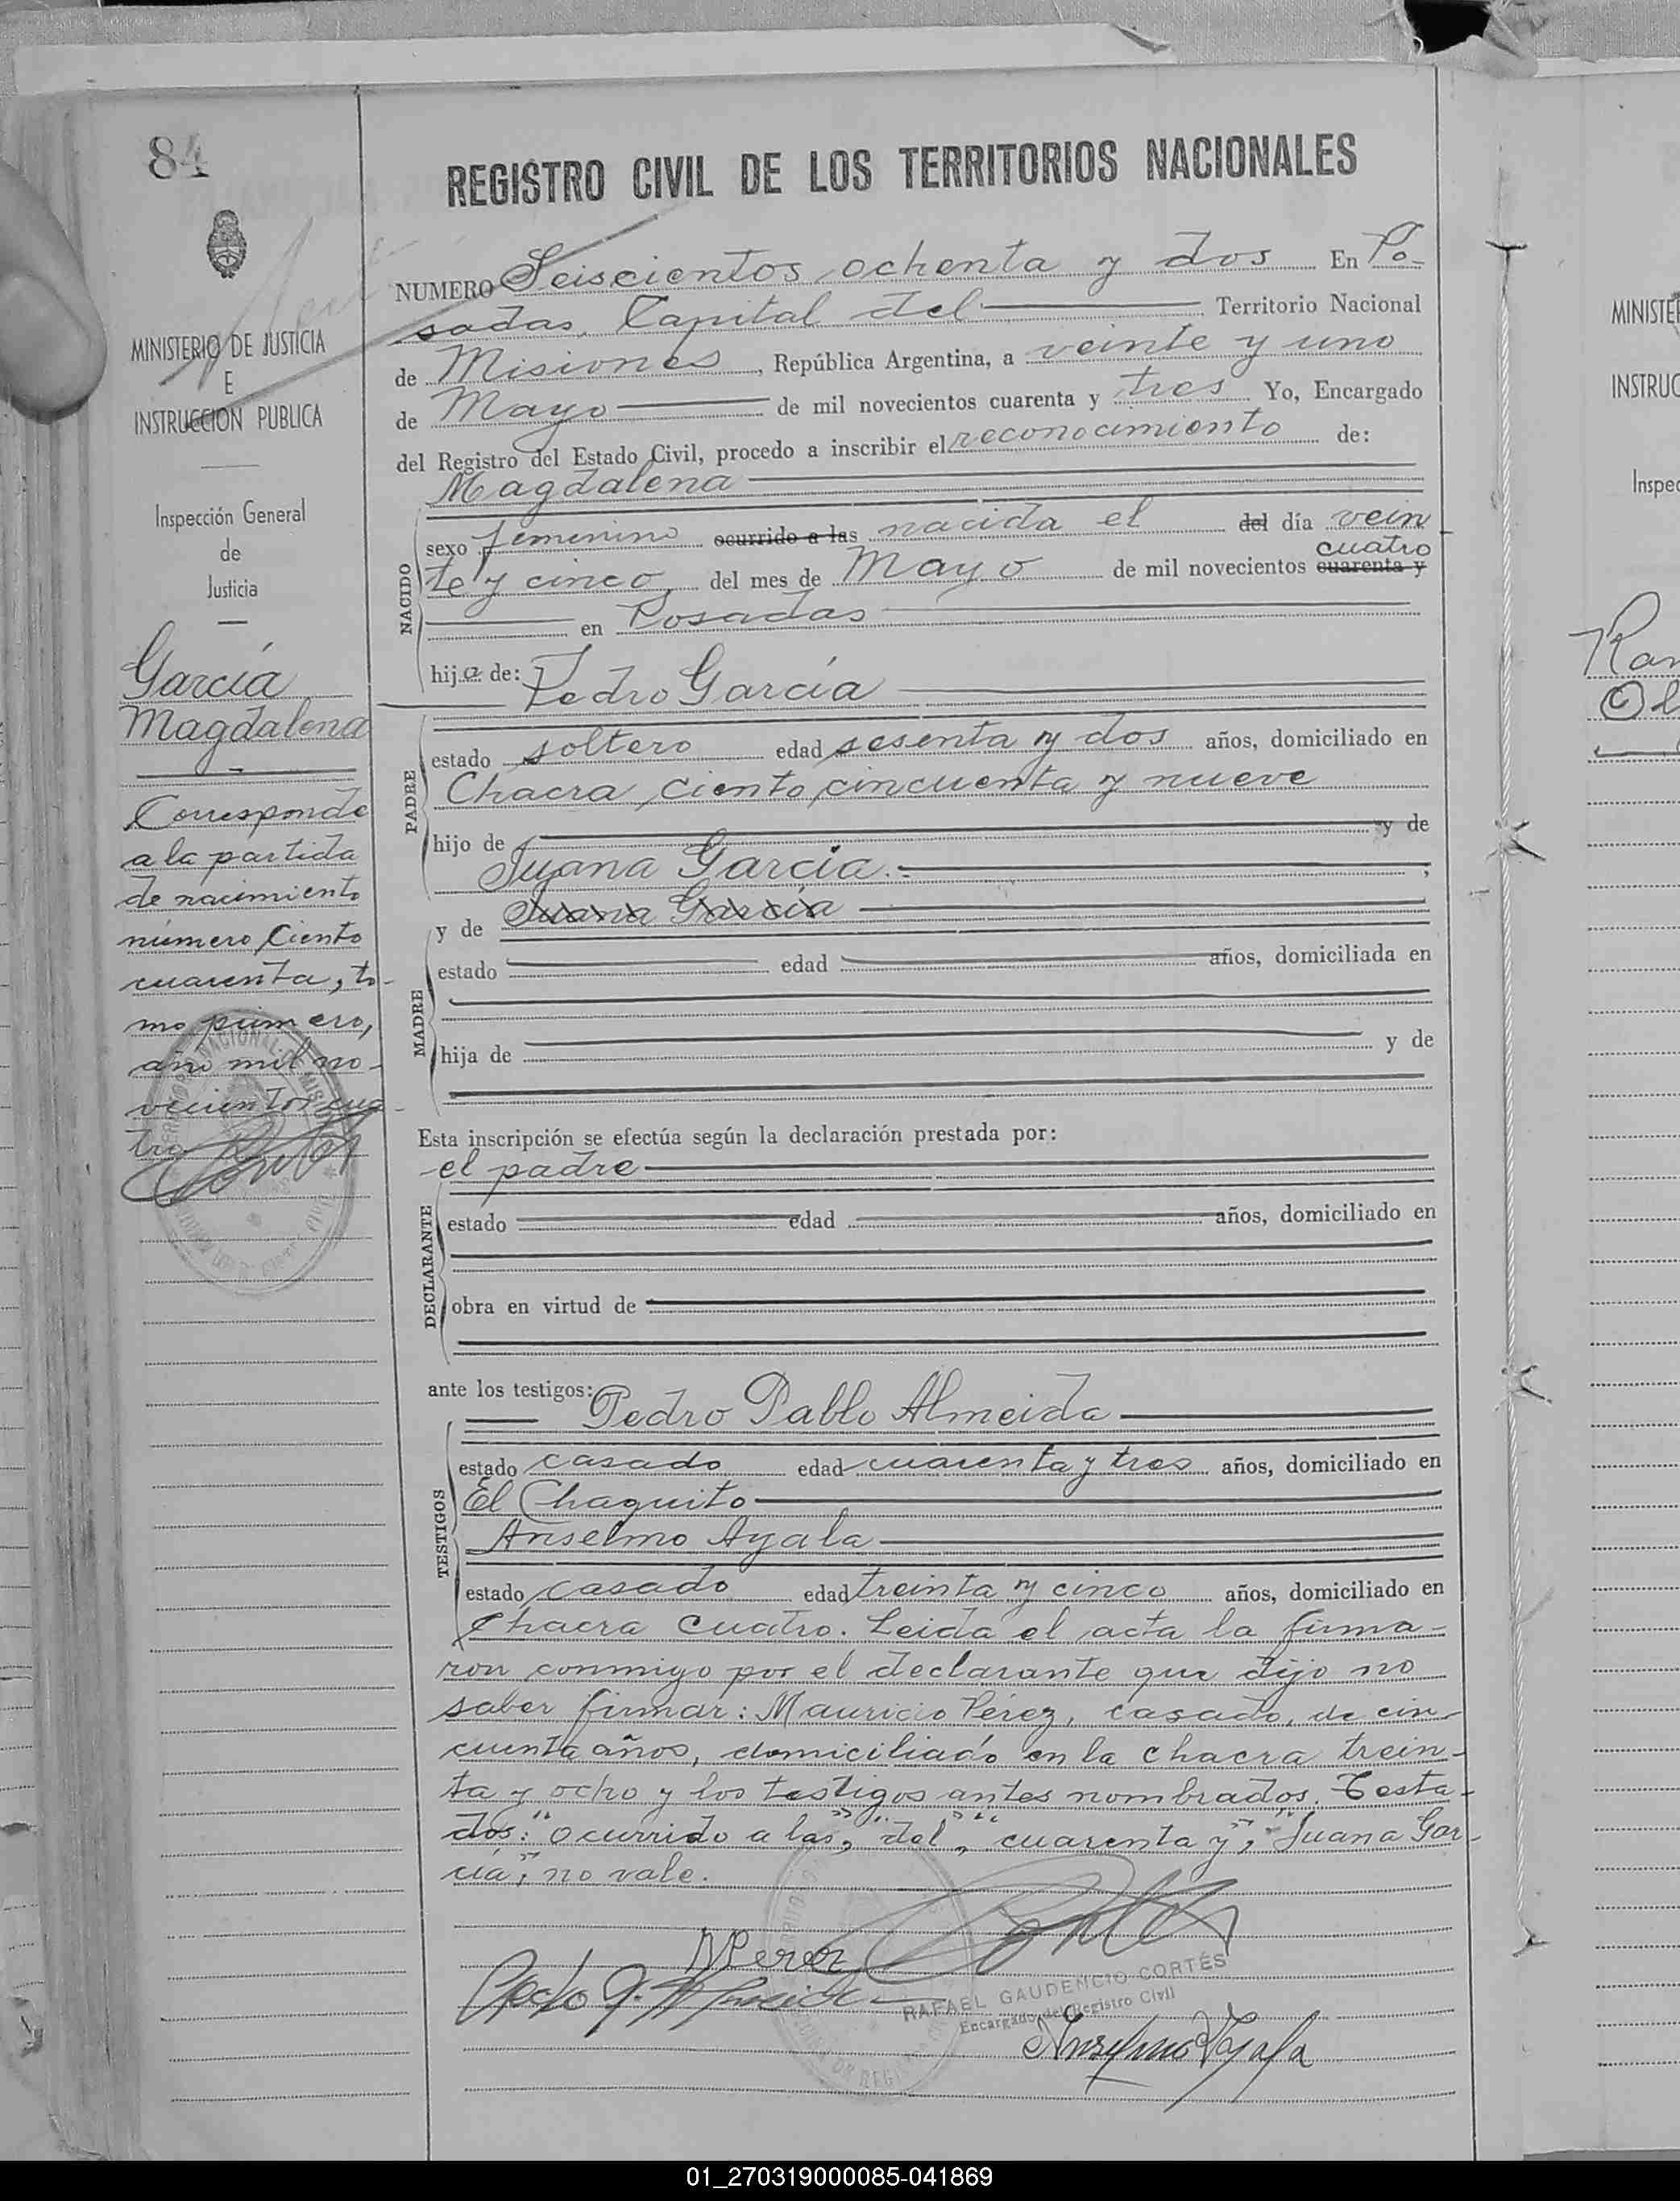 84
MINISTERIO DE JUSTICIA
E
INSTRUCCION PUBLICA
Inspección General
de
Justicia
García
Magdalena
Corresponde
a la partida
de nacimiento
número Ciento
cuarenta, to-
mo primero,
año mil no-
vecientos cua-
tro
REGISTRO CIVIL DE LOS TERRITORIOS NACIONALES
NUMERO Seiscientos ochenta y dos En Po-
sadas, Capital del Territorio Nacional
de Misiones, República Argentina, a veinte y uno
de Mayo de mil novecientos cuarenta y tres Yo, Encargado
del Registro del Estado Civil, procedo a inscribir el reconocimiento de:
Magdalena
NACIDO
sexo femenino ocurrido a las nacida el del día vein-
cuatro
te y cinco del mes de Mayo de mil novecientos cuarenta y
en Posadas
hija de: Pedro García
PADRE
estado soltero edad sesenta y dos años, domiciliado en
Chacra ciento cincuenta y nueve
hijo de y de
Juana García.
y de Juana García
MADRE
estado edad años, domiciliada en
hija de y de
Esta inscripción se efectúa según la declaración prestada por:
el padre
DECLARANTE
estado edad años, domiciliado en
obra en virtud de
ante los testigos: Pedro Pablo Almeida
TESTIGOS
estado casado edad cuarenta y tres años, domiciliado en
El Chaquito
Anselmo Ayala
estado casado edad treinta y cinco años, domiciliado en
Chacra cuatro. Leida el acta la firma-
ron conmigo por el declarante que dijo no
saber firmar: Mauricio Pérez, casado, de cin-
cuenta años, domiciliado en la chacra trein-
ta y ocho y los testigos antes nombrados. Testa-
dos: "ocurrido a las", "del", "cuarenta y", "Juana Gar-
cía", no vale.
MPerez
RAFAEL GAUDENCIO CORTÉS
Encargado del Registro Civil
Anselmo Ayala
MINISTE
INSTRUC
Inspec
Ram
Ol
01_270319000085-041869